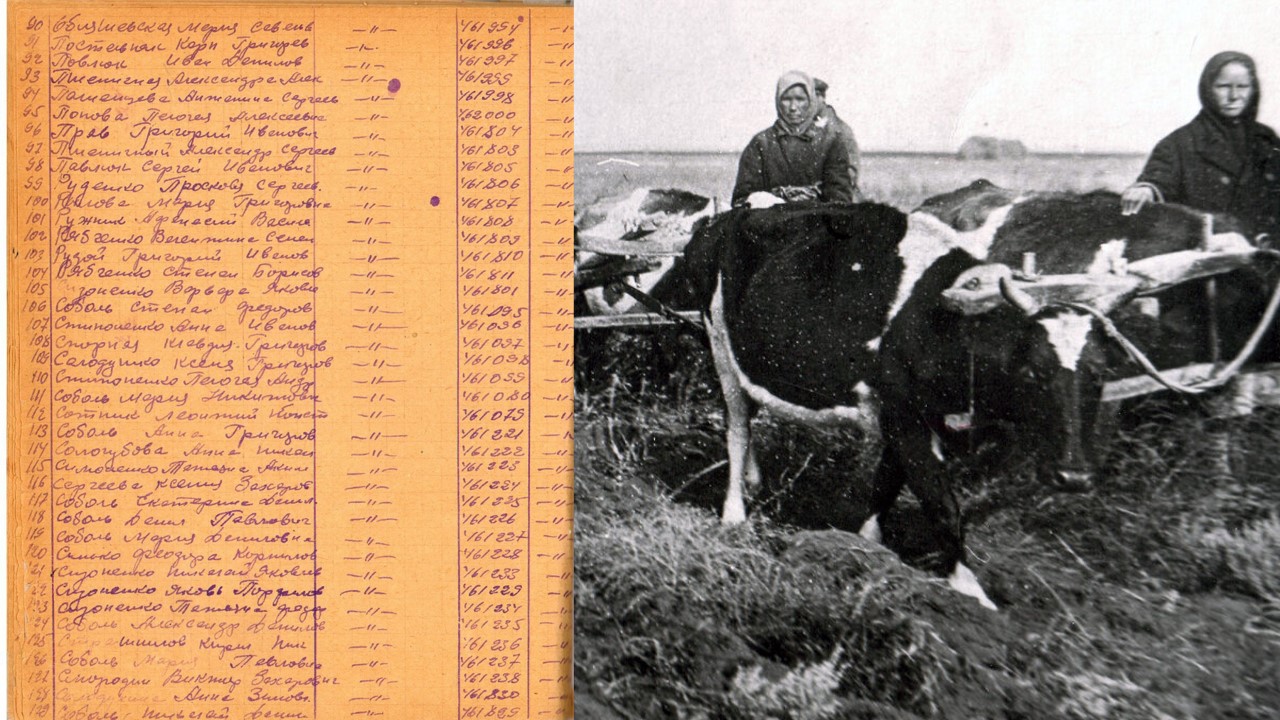 90 Мария Савелив —"— 461994
91 Постевнюк Карп Григорев —"— 461996
92 Павлюк Иван Данилов —"— 461997
93 Пшенична Александра Алек —"— 461999
94 Сергеев —"— 461998
95 Попова Пелогея Алексеевна —"— 462000
96 Прав Григорий Иванович —"— 461804
97 Пшеничный Александр Сергеев —"— 461803
98 Павлюк Сергей Иванович —"— 461805
99 Руденко Просковя Сергеев. —"— 461806
100 Мария Григоровна —"— 461807
101 Ружник Афанасий Васил —"— 461808
102 Рябченко Валентина Семен —"— 461809
103 Рудой Григорий Иванов —"— 461810
104 Рябченко Степан Борисов —"— 461811
105 Варвара Яковл —"— 461801
106 Соболь Степан Федоров —"— 461095
107 Анна Иванов —"— 461096
108 Клавдия Григоров —"— 461097
109 Ксения Григоров —"— 461098
110 Пелогея Андр —"— 461099
111 Соболь Мария Никитовн —"— 461080
112 Сотник Леонтий Конст —"— 461079
113 Соболь Анна Григоров —"— 461221
114 Сологубова Анна Никол —"— 461222
115 Симоненко Татьяна Аким —"— 461223
116 Сергеева Ксения Захаров —"— 461224
117 Соболь Екатерина Данил. —"— 461225
118 Соболь Данил Павлович —"— 461226
119 Соболь Мария Даниловна —"— 461227
120 Феодора Корнилов —"— 461228
121 Сизоненко Николай Яковлев —"— 461233
122 Сизоненко Яковь —"— 461229
123 Сизоненко Татьяна Федор —"— 461234
124 Соболь Александр Данилов —"— 461235
125 Кирил Ник —"— 461236
126 Соболь Мария Павловна —"— 461237
127 Виктор Захарович —"— 461238
128 Анна —"— 461830
129 Соболь Николай Данил —"— 461829